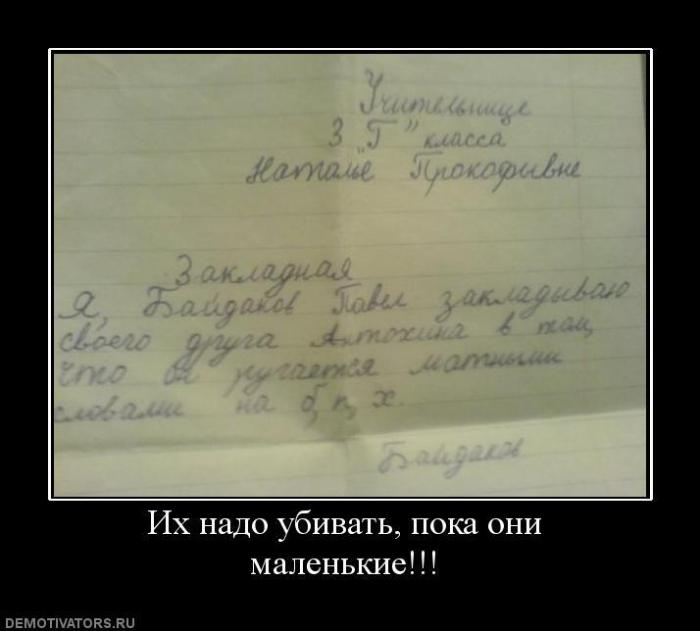 Учительнице
3 "Г" класса
Наталье Прокофивне
Закладная
Я, Байдаков Павел закладываю
своего друга Антохина в том,
что он ругается матными
словами на б, п, х.
Байдаков
Их надо убивать, пока они
маленькие!!!
DEMOTIVATORS.RU